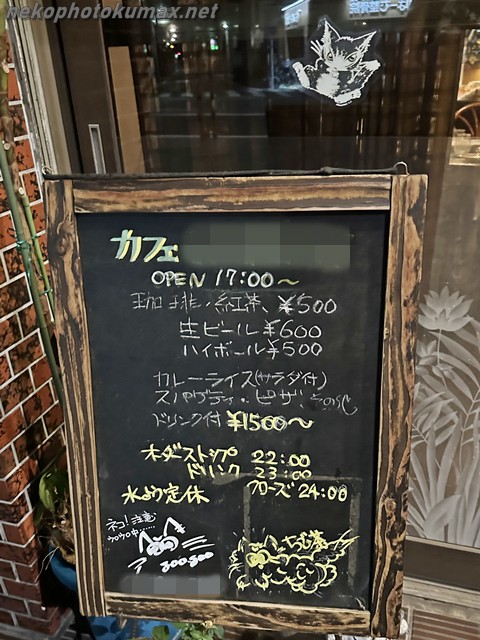 nekophotokumax.net
カフェ
OPEN 17:00〜
珈琲・紅茶 ¥500
生ビール ¥600
ハイボール ¥500
カレーライス(サラダ付)
スパゲティ・ピザ、
ドリンク付 ¥1500〜
オーダーストップ 22:00
ドリンク 23:00
水よう定休 クローズ 24:00
ネコ!注意
ウロウロ中……